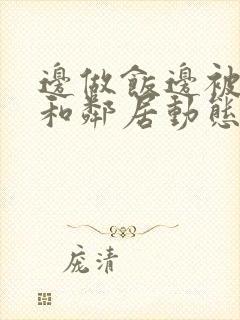 邊做飯邊被
和鄰居動態
龐清